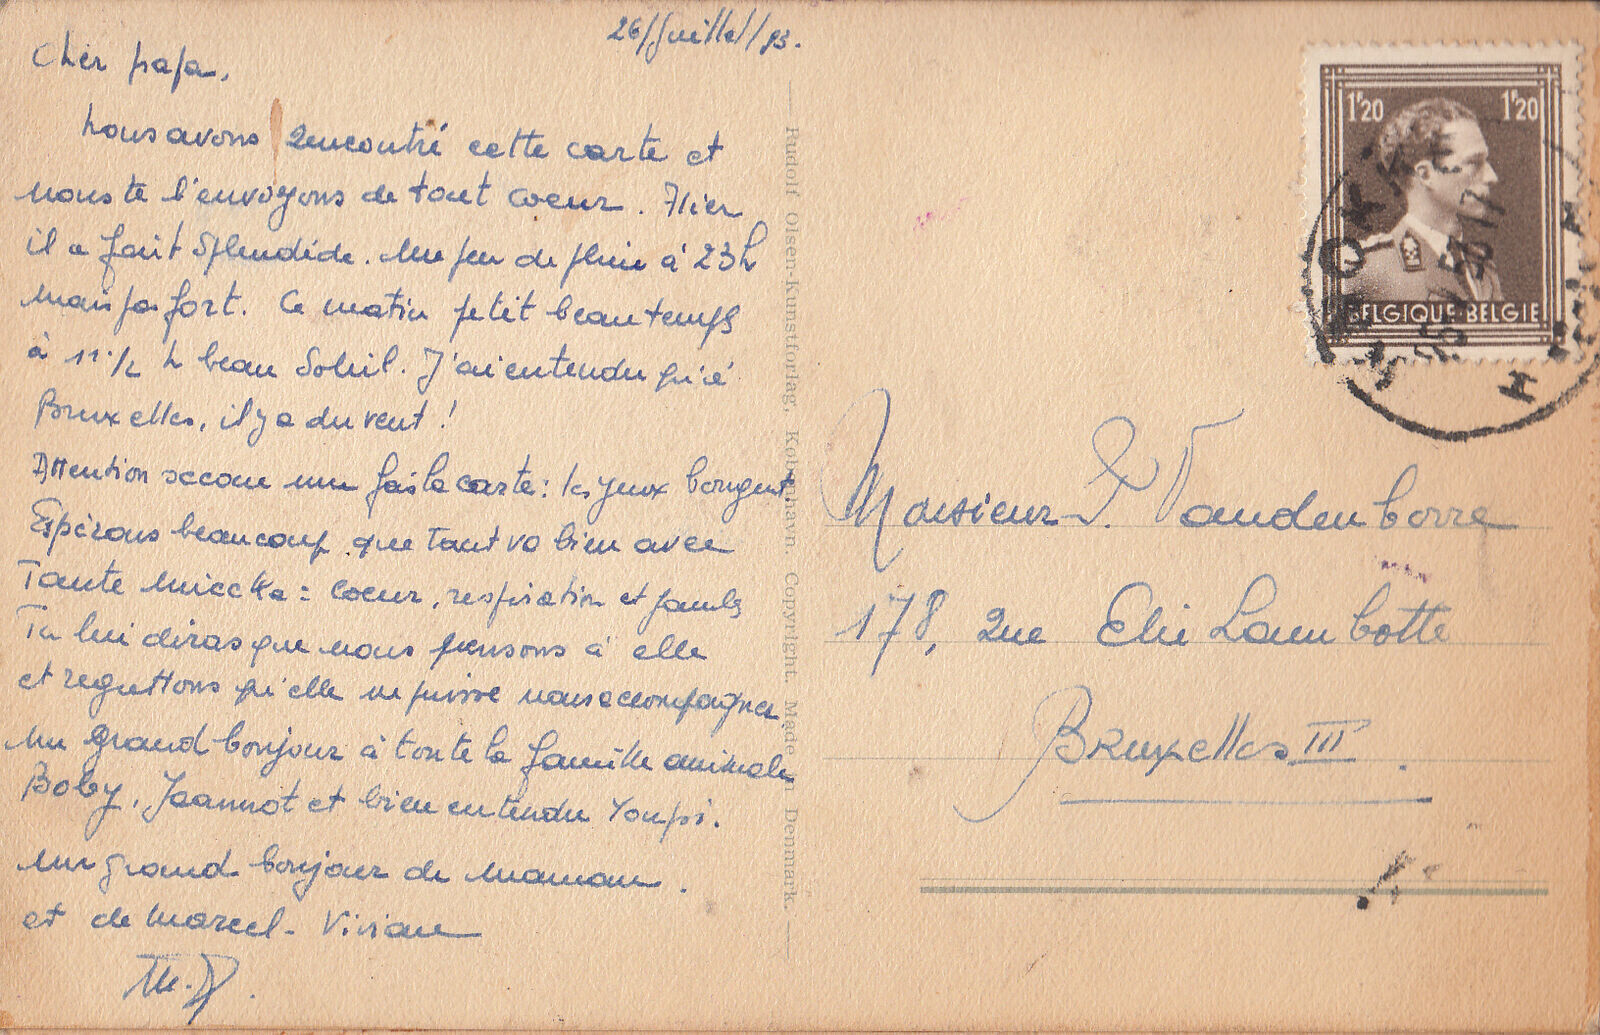 26/Juillet/53.
Cher papa,
Nous avons rencontré cette carte et
nous te l'envoyons de tout coeur. Hier
il a fait splendide. Un peu de pluie à 23h
mais pas fort. Ce matin petit beau temps
à 11 1/2 h beau soleil. J'ai entendu qu'à
Bruxelles, il y a du vent !
Attention secoue une fois la carte : les yeux bougent.
Espérons beaucoup que tout va bien avec
Tante : coeur, respiration et jambes
Tu lui diras que nous pensons à elle
et regrettons qu'elle ne puisse nous accompagner
Un grand bonjour à toute la famille animale
Boby, Jeannot et bien entendu Youpi.
Un grand bonjour de maman.
et de Marcel. Viviane
Rudolf Olsen-Kunstforlag, Kobenhavn. Copyright. Made in Denmark.
1F20 1F20
BELGIQUE-BELGIE
Monsieur Vandenborre
178, rue Elie Lambotte
Bruxelles III.